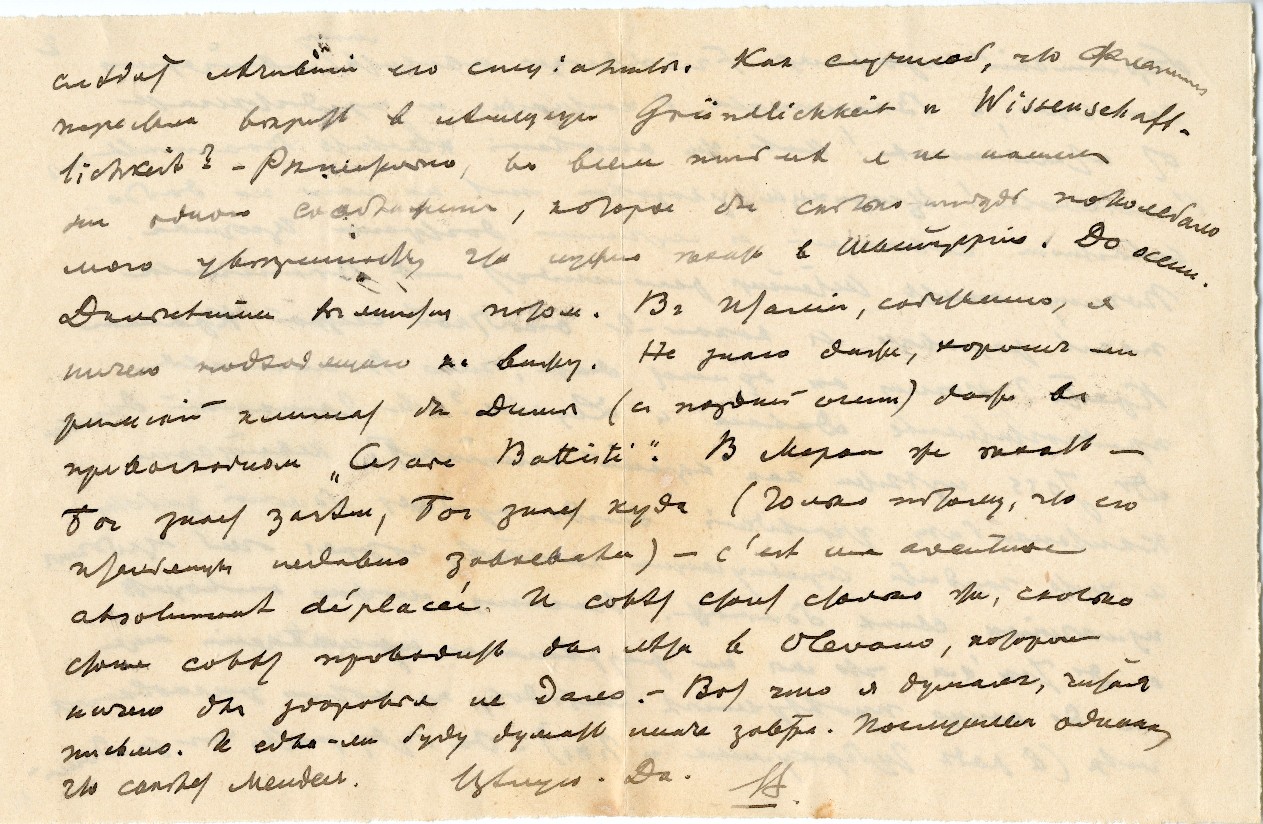 слѣдъ лѣчившій его специалистъ. Как случилось, что Фламинг
перестал вѣрить в нѣмецкую Gründlichkeit и Wissenschaft-
lichkeit? – Рѣшительно, во всем письмѣ я не нашел
ни одного соображенія, которое бы сколько нибудь поколебало
мою увѣренность что нужно ѣхать в Швейцарію. До осени.
Дальнѣйшее потом. В Италіи, собственно, я
ничего подходящаго не вижу. Не знаю даже, хорош ли
римскій климат для Димы (и поздней осени) даже в
превосходном „Cesare Battisti“. В Меран же ѣхать –
Бог знает зачѣм, Бог знает куда (только потому, что его
итальянцы недавно завоевали) – c'est une aventure
absolument déplacée. И совѣт стоит столько же, сколько
стоил совѣт проводить два лѣта в Olevano, которое
ничего для здоровья не дало. – Вот что я думал, читая
письмо. И едва-ли буду думать иначе завтра. Послушаем однако,
что скажет Мендель. Цѣлую. Да. В.